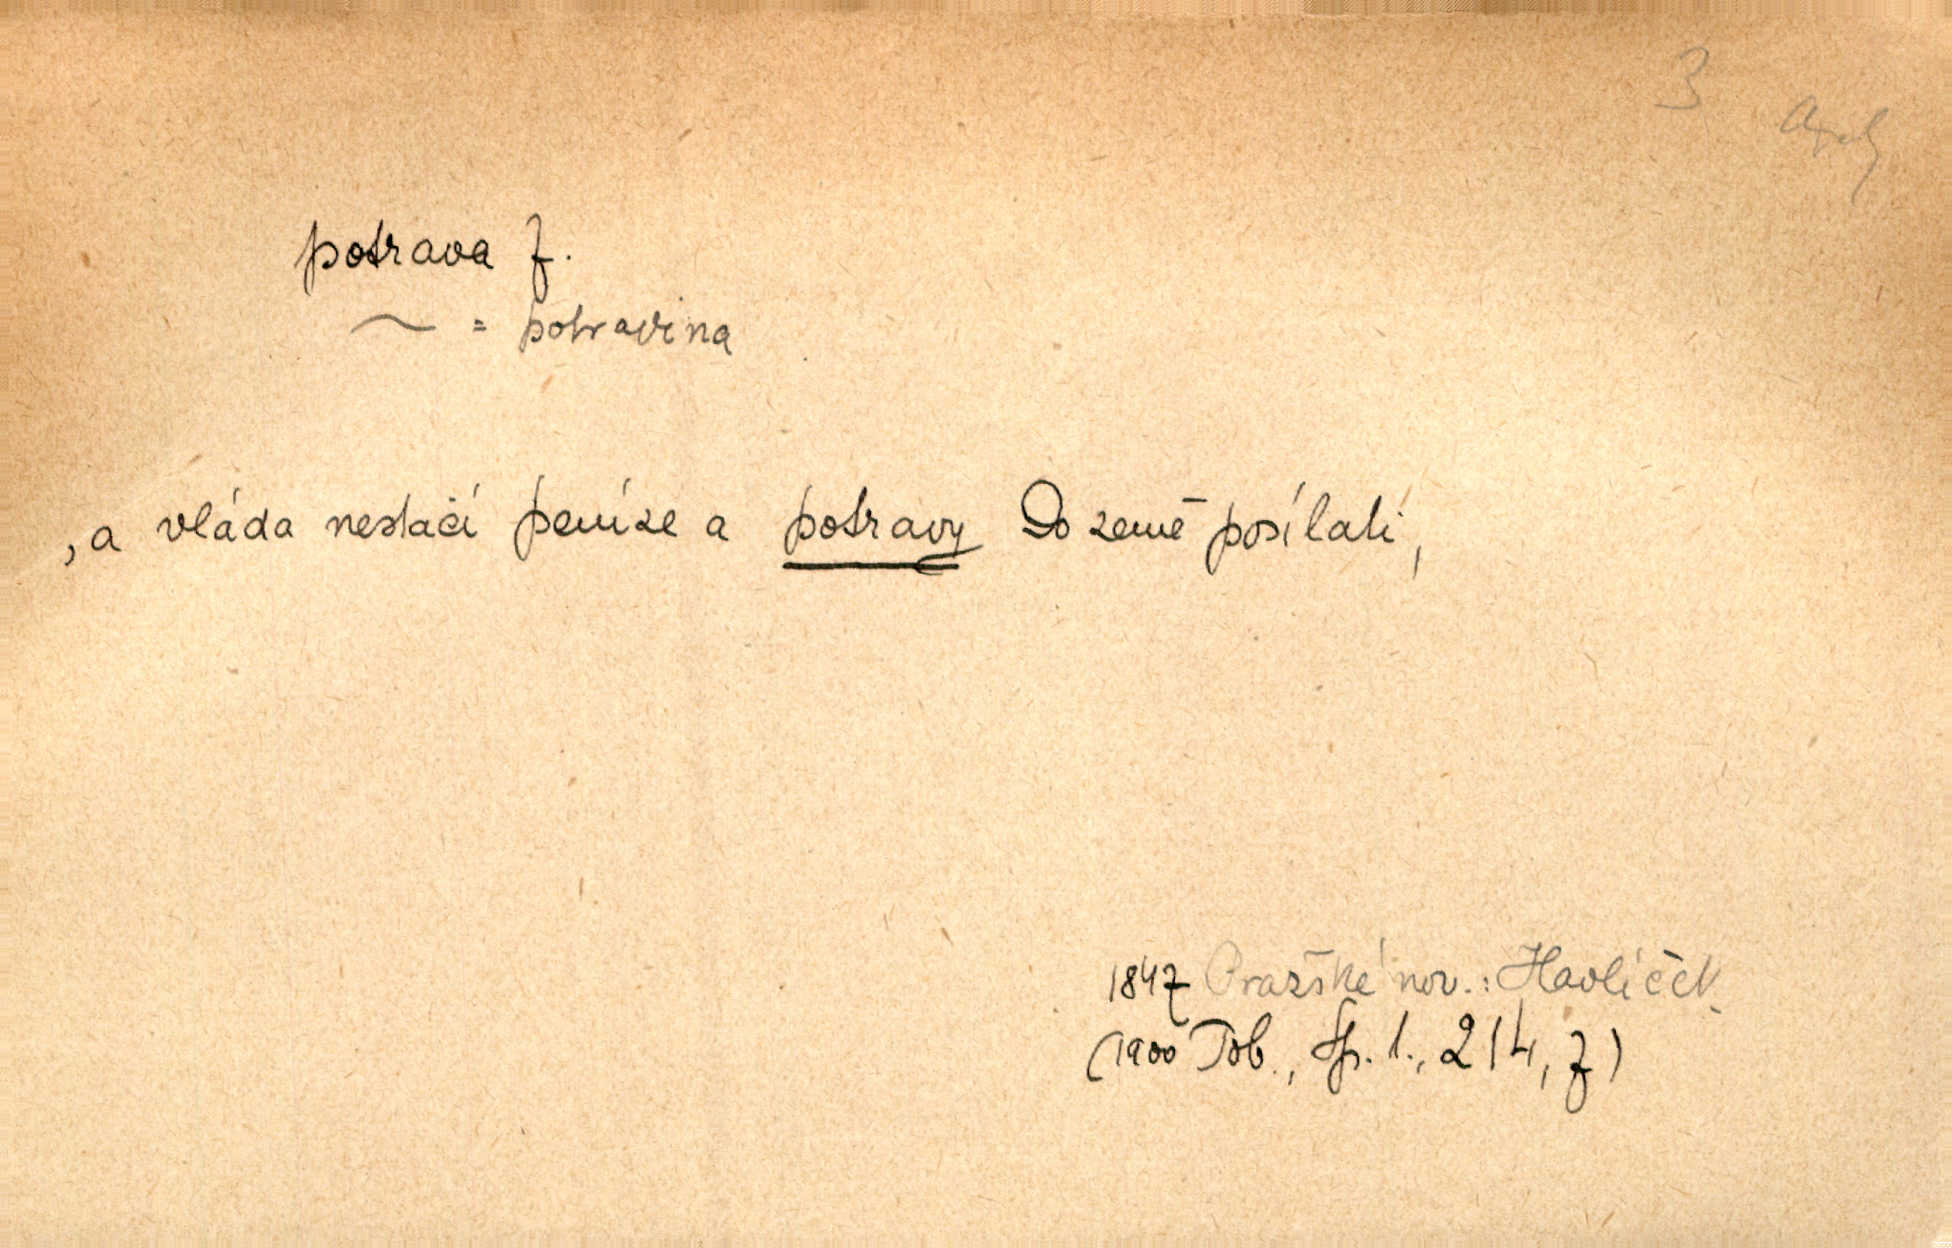 3
potrava f.
~ = potravina
, a vláda nestačí peníze a potravy do země posílati,
1847 Pražské nov.: Havlíček.
(1900 Tob., Sp. 1., 214, z)